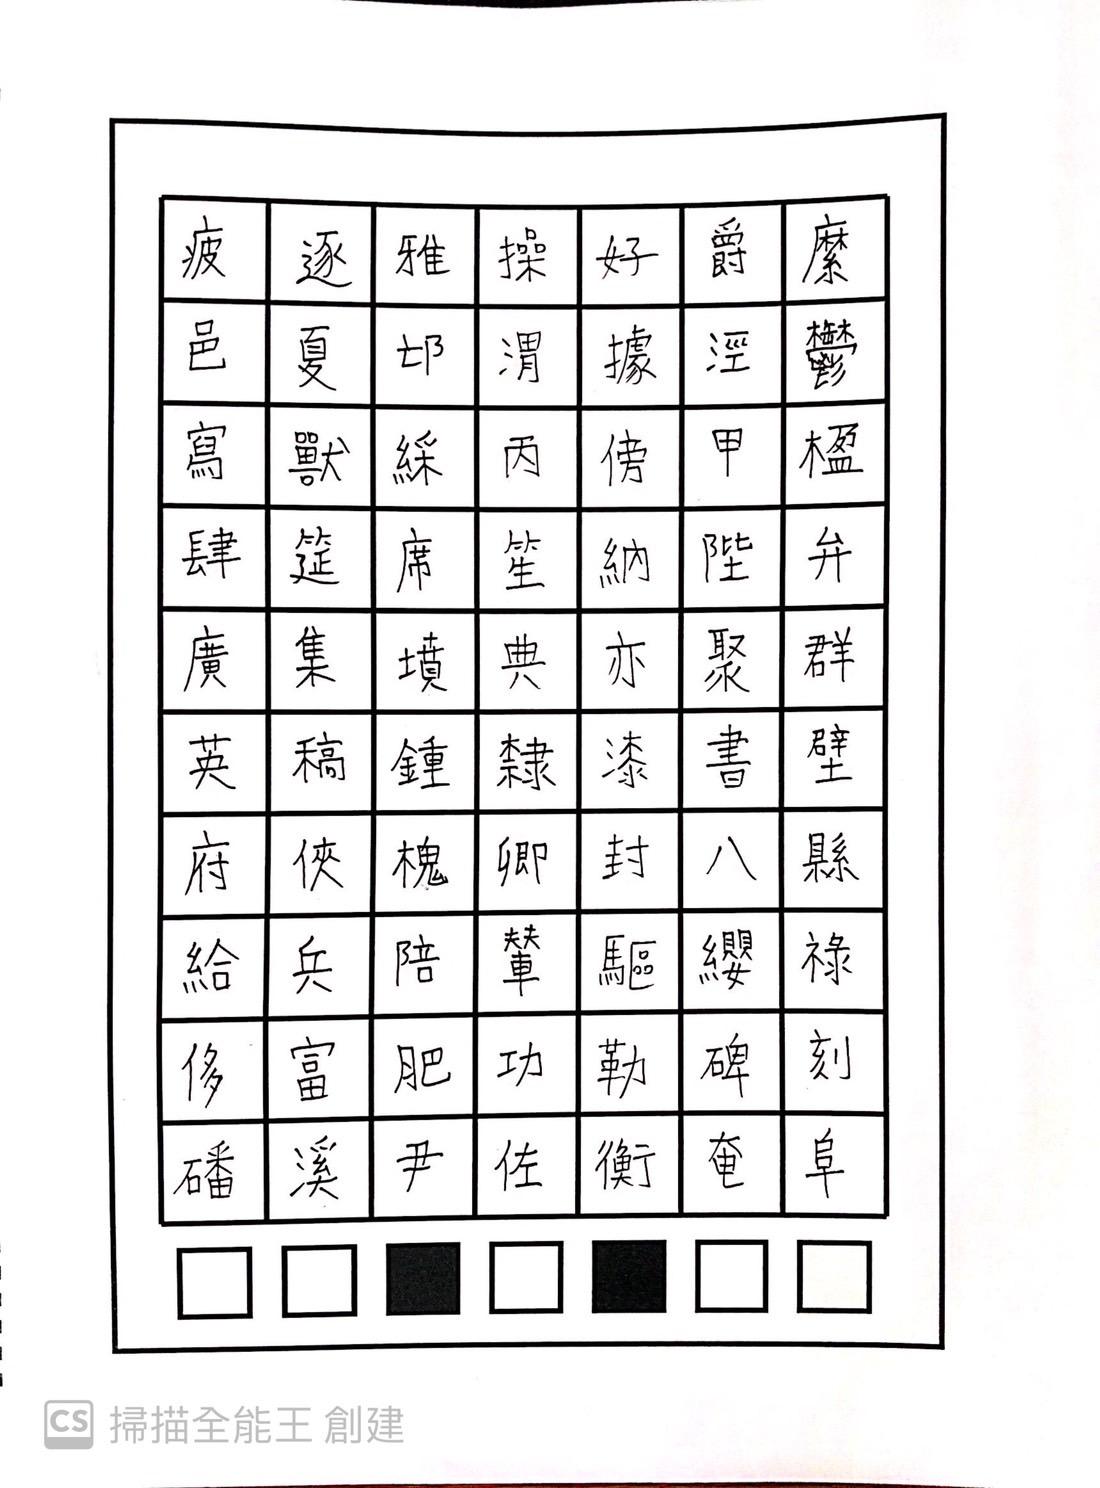 疲逐雅操好爵縻
邑夏邙渭據涇鬱
寫獸綵丙傍甲楹
肆筵席笙納陛弁
廣集墳典亦聚群
英稿鍾隸漆書壁
府俠槐卿封八縣
給兵陪輦驅纓祿
侈富肥功勒碑刻
磻溪尹佐衡奄阜
CS 掃描全能王 創建